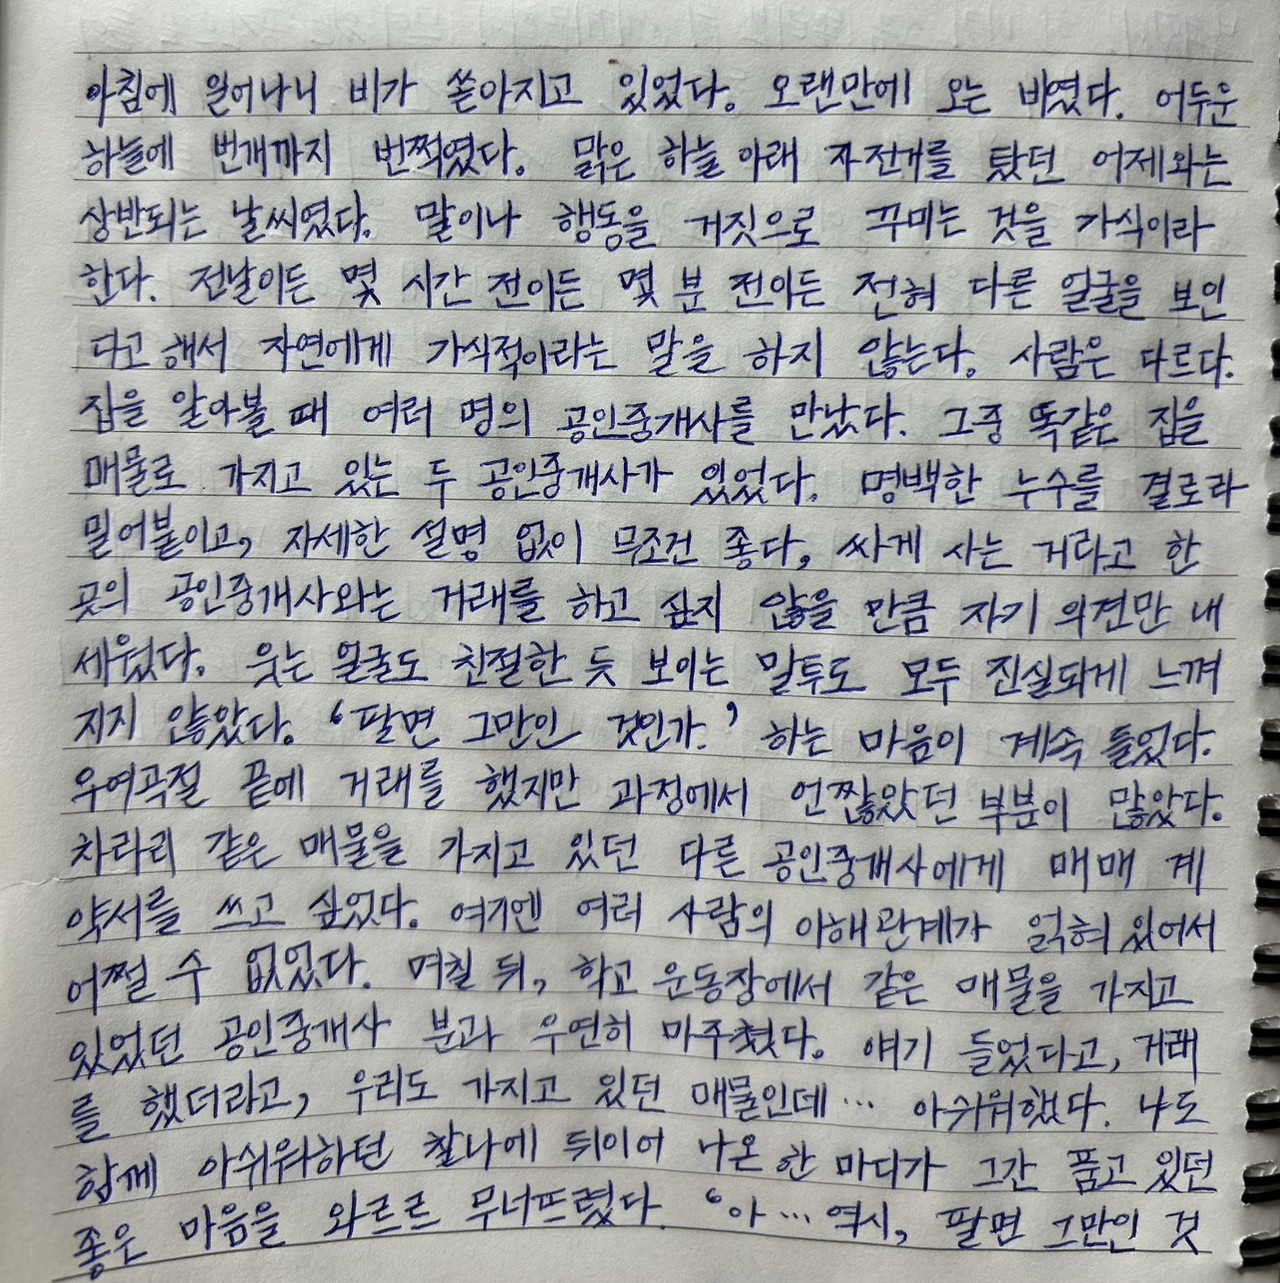 아침에 일어나니 비가 쏟아지고 있었다. 오랜만에 오는 비였다. 어두운
하늘에 번개까지 번쩍였다. 맑은 하늘 아래 자전거를 탔던 어제와는
상반되는 날씨였다. 말이나 행동을 거짓으로 꾸미는 것을 가식이라
한다. 전날이든 몇 시간 전이든 몇 분 전이든 전혀 다른 얼굴을 보인
다고 해서 자연에게 가식적이라는 말을 하지 않는다. 사람은 다르다.
집을 알아볼 때 여러 명의 공인중개사를 만났다. 그중 똑같은 집을
매물로 가지고 있는 두 공인중개사가 있었다. 명백한 누수를 결로라
밀어붙이고, 자세한 설명 없이 무조건 좋다, 싸게 사는 거라고 한
곳의 공인중개사와는 거래를 하고 싶지 않을 만큼 자기 의견만 내
세웠다. 웃는 얼굴도 친절한 듯 보이는 말투도 모두 진실되게 느껴
지지 않았다. ‘팔면 그만인 것인가.’ 하는 마음이 계속 들었다.
우여곡절 끝에 거래를 했지만 과정에서 언짢았던 부분이 많았다.
차라리 같은 매물을 가지고 있던 다른 공인중개사에게 매매 계
약서를 쓰고 싶었다. 여기엔 여러 사람의 이해관계가 얽혀 있어서
어쩔 수 없었다. 며칠 뒤, 학교 운동장에서 같은 매물을 가지고
있었던 공인중개사 분과 우연히 마주쳤다. 얘기 들었다고, 거래
를 했더라고, 우리도 가지고 있던 매물인데… 아쉬워했다. 나도
함께 아쉬워하던 찰나에 튀이어 나온 한 마디가 그간 품고 있던
좋은 마음을 와르르 무너뜨렸다. ‘아… 역시, 팔면 그만인 것